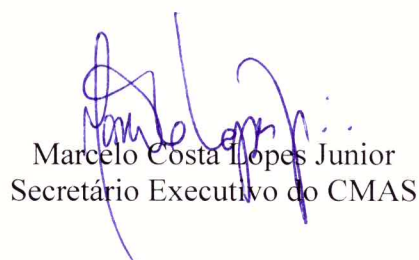 Marcelo Costa Lopes Junior
Secretário Executivo do CMAS